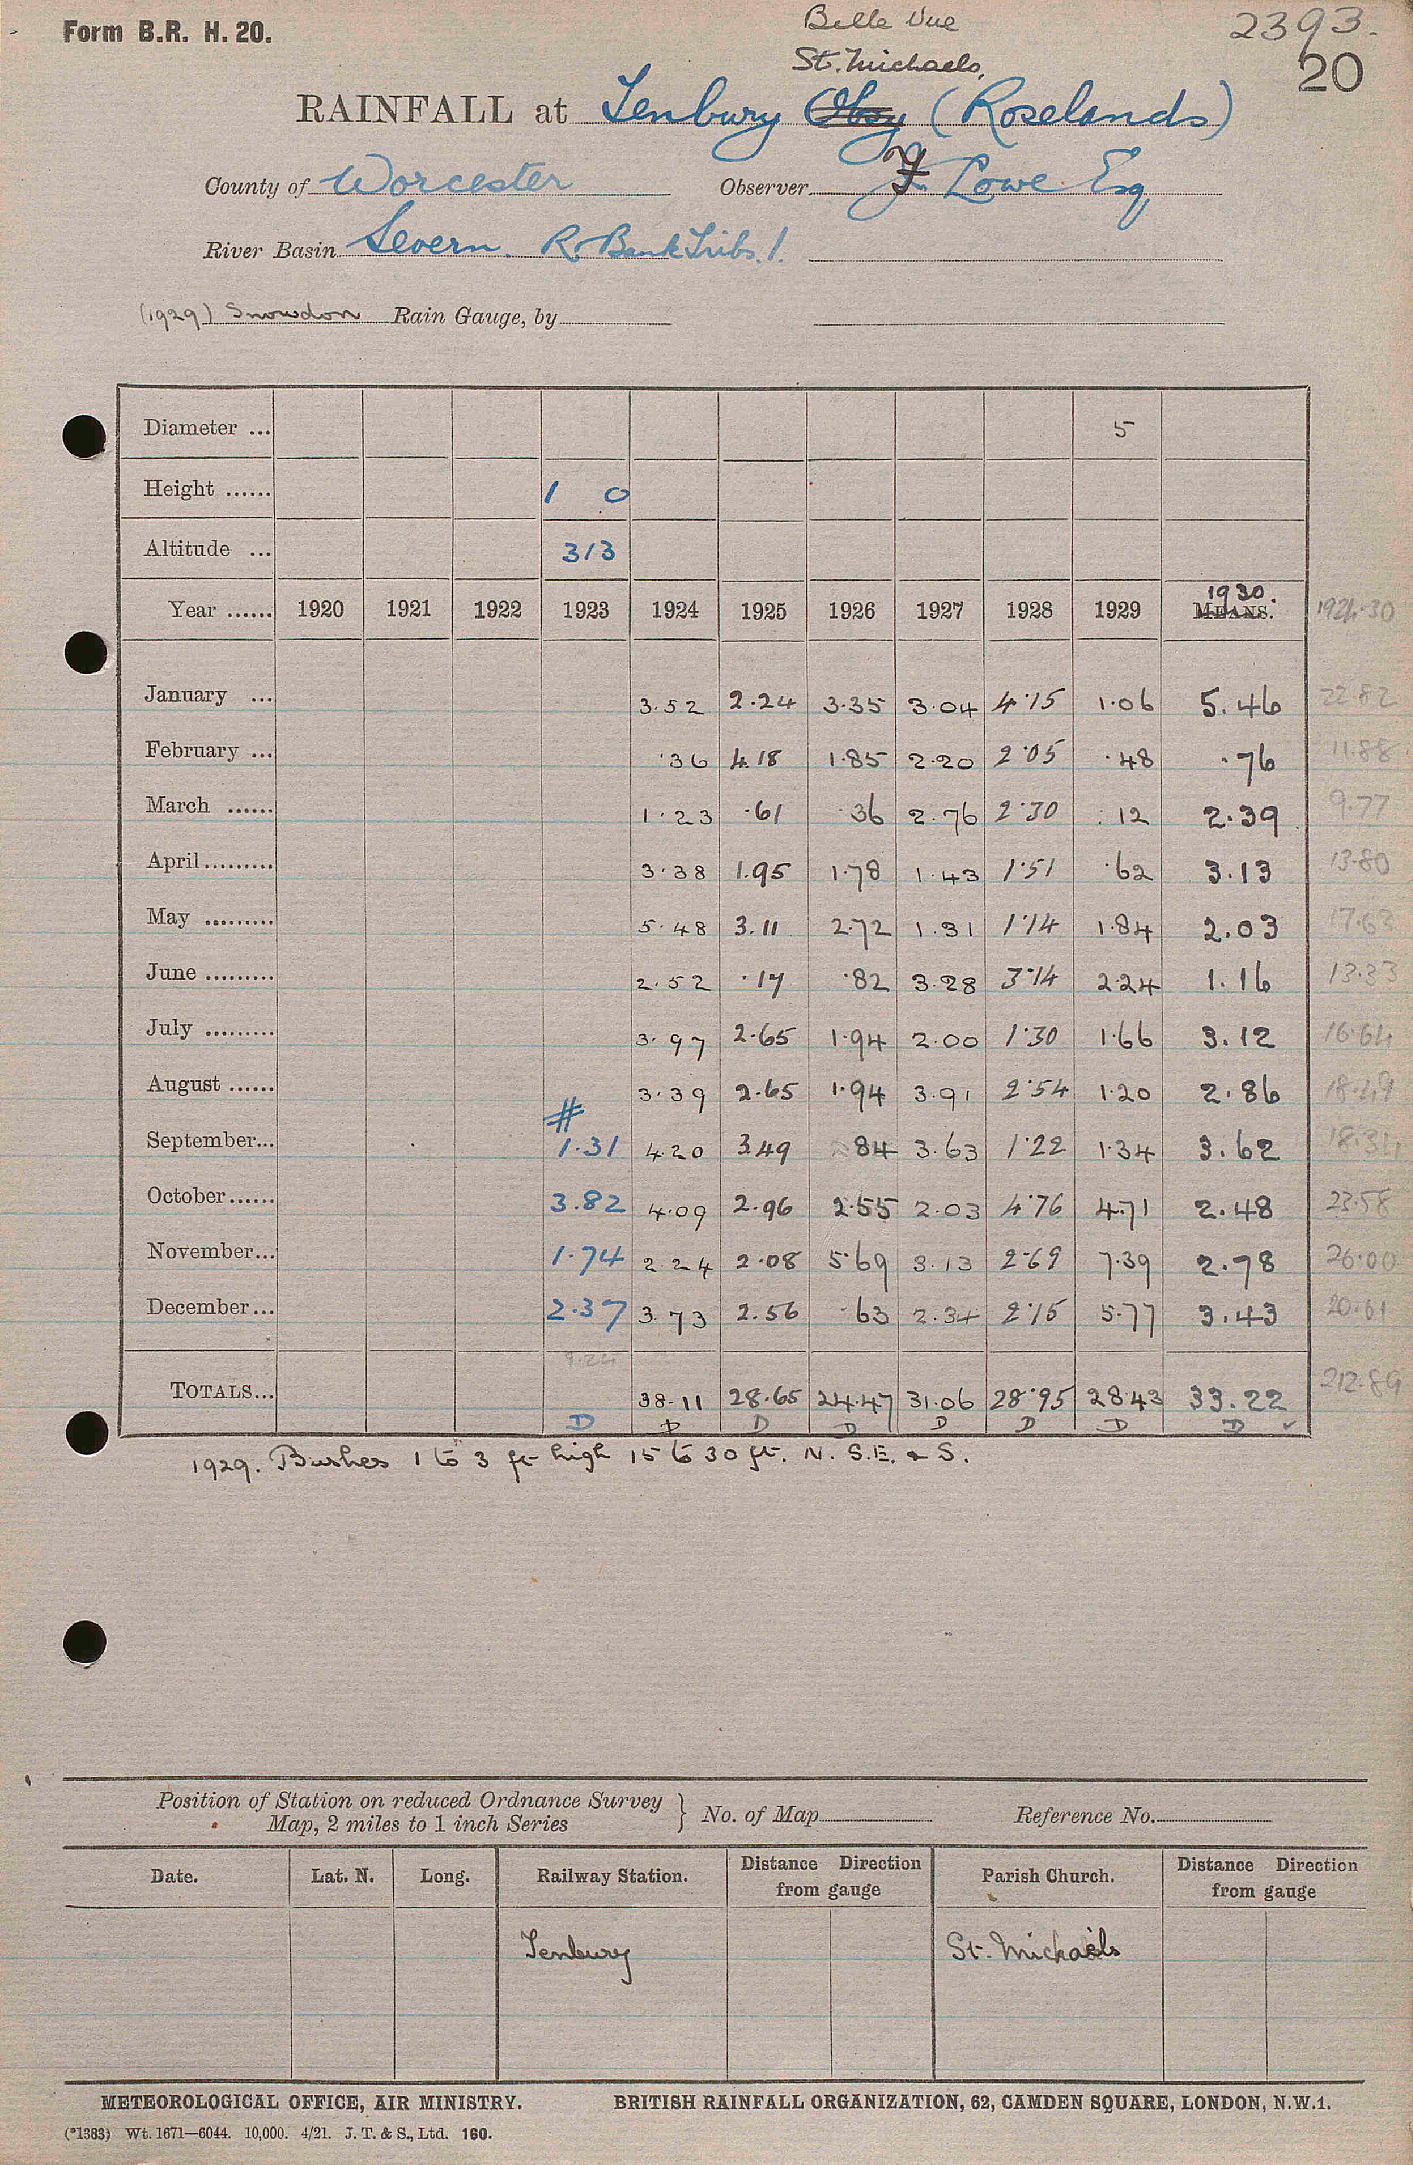 Form B.R. H. 20.
Belle Vue
2393.
St. Michaels,
20
RAINFALL at Tenbury Obsy (Roselands)
County of Worcester Observer J Lowe Esq
River Basin Severn. R. Bank Tribs. 1.
(1929) Snowdon Rain Gauge, by
Diameter ... 5
Height ...... 1 0
Altitude ... 313
Year ...... 1920 1921 1922 1923 1924 1925 1926 1927 1928 1929 MEANS. 1930. 1924-30
January ... 3.52 2.24 3.35 3.04 4.15 1.06 5.46 22.82
February ... .36 4.18 1.85 2.20 2.05 .48 .76 11.88
March ...... 1.23 .61 .36 2.76 2.30 .12 2.39 9.77
April ......... 3.38 1.95 1.78 1.43 1.51 .62 3.13 13.80
May ......... 5.48 3.11 2.72 1.31 1.14 1.84 2.03 17.63
June ......... 2.52 .17 .82 3.28 3.14 2.24 1.16 13.33
July ......... 3.97 2.65 1.94 2.00 1.30 1.66 3.12 16.64
August ...... # 3.39 2.65 1.94 3.91 2.54 1.20 2.86 18.49
September... 1.31 4.20 3.49 .84 3.63 1.22 1.34 3.62 18.34
October...... 3.82 4.09 2.96 2.55 2.03 4.76 4.71 2.48 23.58
November... 1.74 2.24 2.08 5.69 3.13 2.69 7.39 2.78 26.00
December... 2.37 3.73 2.56 .63 2.34 2.15 5.77 3.43 20.61
9.24
TOTALS... 38.11 28.65 24.47 31.06 28.95 28.43 33.22 212.89
D D D D D D D D ✓
1929. Bushes 1 to 3 ft high 15 to 30 ft. N. S.E. & S.
Position of Station on reduced Ordnance Survey
Map, 2 miles to 1 inch Series } No. of Map Reference No.
Date. Lat. N. Long. Railway Station. Distance Direction from gauge Parish Church. Distance Direction from gauge
Tenbury St. Michaels
METEOROLOGICAL OFFICE, AIR MINISTRY. BRITISH RAINFALL ORGANIZATION, 62, CAMDEN SQUARE, LONDON, N.W.1.
(*1383) Wt. 1671—6044. 10,000. 4/21. J. T. & S., Ltd. 160.